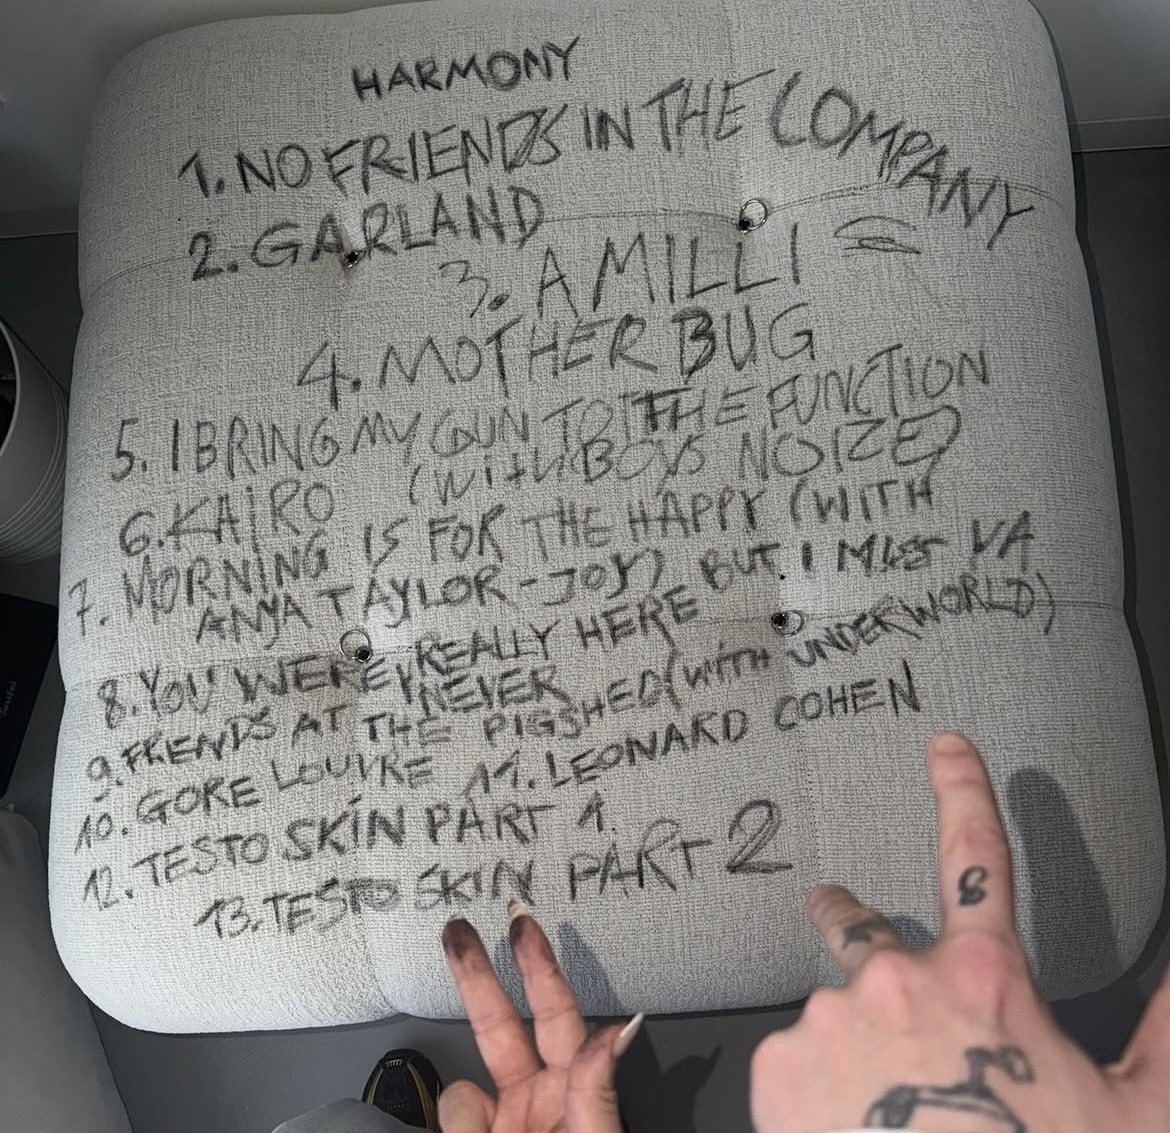 HARMONY
1. NO FRIENDS IN THE COMPANY
2. GARLAND
3. A MILLI
4. MOTHER BUG
5. I BRING MY GUN TO THE FUNCTION
(WITH BOYS NOIZE)
6. KAIRO
7. MORNING IS FOR THE HAPPY (WITH
ANYA TAYLOR-JOY)
8. YOU WERE NEVER REALLY HERE BUT I MISS YA
9. FRIENDS AT THE PIGSHED (WITH UNDERWORLD)
10. GORE LOUVRE 11. LEONARD COHEN
12. TESTO SKIN PART 1.
13. TESTO SKIN PART 2
8